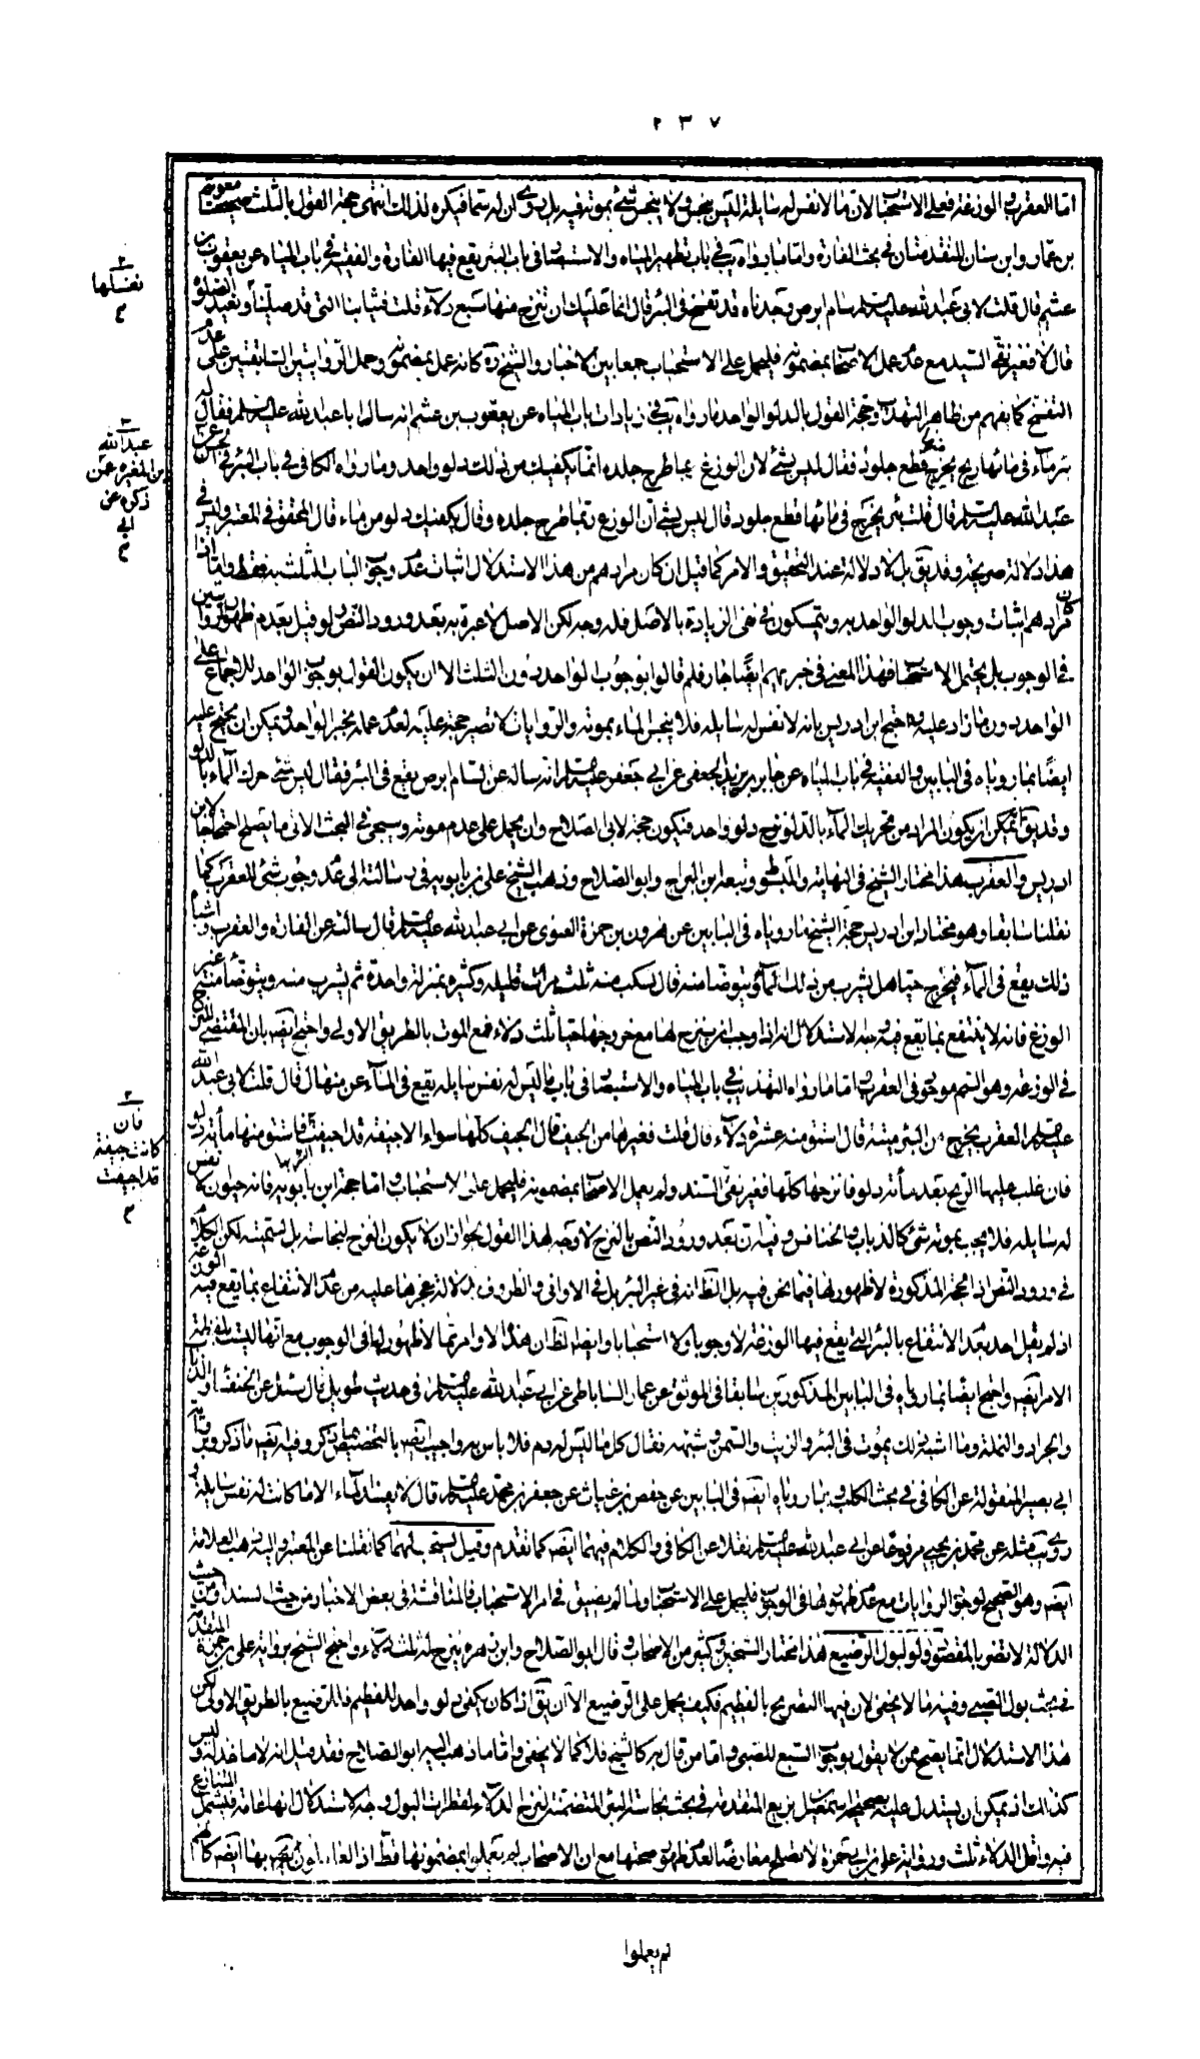 ٢٣٧
اما العقرب والوزغة فعلى الاستحباب لان ما لا نفس له سايلة ليس بنجس ولا ينجس شئ بموته فيه بل روى ان له سما فيكره لذلك انتهى حجة القول بالثلث صحيحتا معوية
بن عمار وابن سنان المتقدمتان في بحث الفارة واما ما رواه يب في باب تطهير المياه والاستبصار في باب البئر يقع فيها الفارة والفقيه في باب المياه عن يعقوب بن
عثيم قال قلت لابي عبد الله عليه السلم سام ابرص وجدناه قد تفسخ في البئر قال انما عليك ان تنزح منها سبع دلاء قلت فثيابنا التي قد صلينا ونعيد الصلوة
قال لا فغير نقي السند مع عدم عمل الاصحاب بمضمونه فليحمل على الاستحباب جمعا بين الاخبار والشيخ ره كانه عمل بمضمونه وحمل الروايتين السابقتين على عدم
التفسخ كما يفهم من ظاهر التهذيب وحجة القول بالدلو الواحد ما رواه يب في زيادات باب المياه عن يعقوب بن عثيم انه سال ابا عبد الله عليه السلم فقال له
بئر ماء في مائها ريح يخرج منها قطع جلود فقال ليس بشئ لان الوزغ ربما طرح جلده انما يكفيك من ذلك دلو واحد وما رواه الكافي في باب البئر في
عبد الله عليه السلم قال قلت بئر يخرج في مائها قطع جلود قال ليس بشئ ان الوزغ ربما طرح جلده وقال يكفيك دلو من ماء قال المحقق في المعتبر وليس في
هذا دلالة صريحة وقد يق بل لا دلالة عند التحقيق والامر كما قيل ان كان مرادهم من هذا الاستدلال اثبات عدم وجوب الثلث فقط واما اذا
كان مرادهم اثبات وجوب الدلو الواحد به ويتمسكون في نفي الزيادة بالاصل فله وجه لكن الاصل لا عبرة به بعد ورود النص لو قيل بعدم ظهور الروايتين
في الوجوب بل يحتمل الاستحباب فهذا المعنى في خبريهم ايضا جار فلم قالوا بوجوب الواحد دون الثلث الا ان يكون القول بوجوب الواحد للاجماع على
الواحد دون ما زاد عليه واحتج ابن ادريس بانه لا نفس له سايلة فلا ينجس الماء بموته والروايات لا تصير حجة عليه لعدم عمله بخبر الواحد ويمكن ان يحتج عليه
ايضا بما روياه في البابين والفقيه في باب المياه عن جابر بن يزيد الجعفي عن ابي جعفر عليه السلم انه ساله عن السام ابرص يقع في البئر فقال ليس بشئ حرك الماء بالدلو
وقد يق يمكن ان يكون المراد من تحريك الماء بالدلو نزح دلو واحد فيكون حجة لابي الصلاح وان يحمل على عدم موته وسيجئ في البحث الاتي ما يصلح احتجاجا لابن
ادريس والعقرب هذا مختار الشيخ في النهاية والمبسوط وتبعه ابن البراج وابو الصلاح وذهب الشيخ علي بن بابويه في رسالته الى عدم وجوب شئ للعقرب كما
نقلنا سابقا وهو مختار ابن ادريس حجة الشيخ ما روياه في البابين عن هرون بن حمزة الغنوي عن ابي عبد الله عليه السلم قال سالته عن الفارة والعقرب واشباه
ذلك يقع في الماء فيخرج حيا هل يشرب من ذلك الماء ويتوضا منه قال يسكب منه ثلث مرات قليله وكثيره بمنزلة واحدة ثم يشرب منه ويتوضا منه غير
الوزغ فانه لا ينتفع بما يقع فيه وجه الاستدلال انه اذا وجب ان ينزح لها مع خروجها حيا ثلث دلاء فمع الموت بالطريق الاولى واحتج ايضه بان المقتضي للنزح
في الوزغة وهو السم موجود في العقرب اما ما رواه التهذيب في باب المياه والاستبصار في باب ما ليس له نفس سايلة يقع في الماء عن منهال قال قلت لابي عبد الله
عليه السلم العقرب يخرج من البئر ميتة قال استق منه عشرة دلاء قال قلت فغيرها من الجيف قال الجيف كلها سواء الا جيفة قد اجيفت فاستق منها مائة دلو
فان غلب عليها الريح بعد مائة دلو فانزحها كلها فغير نقي السند ولم يعمل الاصحاب بمضمونه فليحمل على الاستحباب واما حجة ابن بابويه فانه حيوان لا نفس
له سايلة فلا يجب بموته شئ كالذباب والخنافس وفيه ان بعد ورود النص بالنزح لا وجه لهذا القول لجواز ان لا يكون النزح لنجاسته بل لسميته لكن الكلام
في ورود النص اذ الحجة المذكورة لا ظهور لها فيما نحن فيه بل الظ انه في غير البئر بل في الاواني والظروف بدلالة عجزها عليه من عدم الانتفاع بما يقع فيه الوزغة
اذ لم يقل احد بعدم الانتفاع بالبئر التي يقع فيها الوزغة لا وجوبا ولا استحبابا وايضه الظ ان هذا الاوامر مما لا ظهور لها في الوجوب مع انها ليست بلفظ
الامر ايضه واحتج ايضا بما روياه في البابين المذكورين سابقا في الموثق عن عمار الساباطي عن ابي عبد الله عليه السلم في حديث طويل قال سئل عن الخنفساء والذباب
والجراد والنملة وما اشبه ذلك يموت في البئر والزيت والسمن وشبهه فقال كل ما ليس له دم فلا باس به واجيب ايضه بالتخصيص بما ذكر وفيه ايضه ما ذكر وبرواية
ابي بصير المنقولة عن الكافي في بحث الكلب وبما روياه ايضه في البابين عن حفص بن غياث عن جعفر بن محمد عليه السلم قال لا يفسد الماء الا ما كانت له نفس سايلة و
روى يب مثله عن محمد بن يحيى مرفوعا عن ابي عبد الله عليه السلم نقلا عن الكافي والكلام فيهما ايضه كما تقدم وقيل يستحب لهما كما نقلنا عن المعتبر واليه ذهب العلامة
ايضه وهو الصحيح لوجود الروايات مع عدم ظهورها في الوجوب فليحمل على الاستحباب ولما لم يضيق في امر الاستحباب فالمناقشة في بعض الاخبار من حيث السند ومن حيث
الدلالة لا تضر بالمقصود ودلو لبول الرضيع هذا مختار الشيخين وكثير من الاصحاب وقال ابو الصلاح وابن زهرة ينزح له ثلث دلاء واحتج الشيخ برواية علي بن ابي حمزة المتقدمة
في بحث بول الصبي وفيه ما لا يخفى لان فيها التصريح بالفطيم فكيف يحمل على الرضيع الا ان يق اذا كان يكفي دلو واحد للفطيم فالرضيع بالطريق الاولى لكن
هذا الاستدلال انما يصح ممن لا يقول بوجوب السبع للصبي واما من قال به كالشيخ فلا كما لا يخفى واما ما ذهب اليه ابو الصلاح فقد قيل انه لا ماخذ له وليس
كذلك اذ يمكن ان يستدل عليه بصحيحة محمد بن اسمعيل بن بزيع المتقدمة في بحث نجاسة البئر المتضمنة لنزح دلاء لقطرات البول وجه الاستدلال انها عامة فيشمل المتنازع
فيه واقل الدلاء ثلث ورواية علي بن ابي حمزة لا تصلح معارضا لعدم ظهور صحتها مع ان الاصحاب لم يعملوا بمضمونها قط اذ القائلون بها ايضه كانهم
لم يعملوا
نغسلها
م
عبد الله
بن المغيرة عمن
ذكره عن
ابي
م
فان
كانت جيفة
قد اجيفت
م